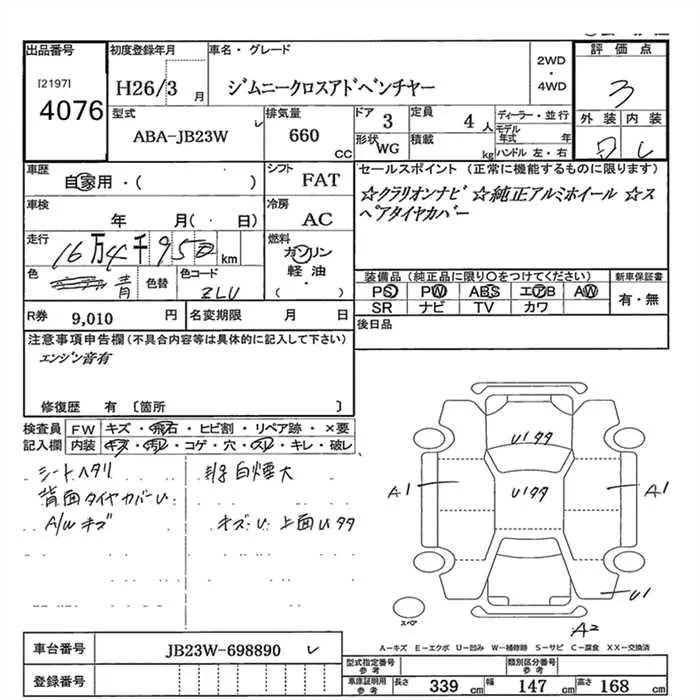 出品番号
[2197]
4076
初度登録年月
H26/3 月
車名・グレード
ジムニークロスアドベンチャー
2WD
・
4WD
評価点
3
外装 内装
型式
ABA-JB23W
排気量
660
CC
ドア 3
形状 WG
定員 4 人
積載 kg
ディーラー・並行
モデル年式 年
ハンドル 左・右
車歴
自家用・( )
シフト
FAT
車検
年 月( ・ 日)
冷房
AC
走行
16万4千950 km
燃料
ガソリン
軽油
・
( )
色
青
色替
色コード
ZLU
R券 9,010 円
名変期限 月 日
セールスポイント (正常に機能するものに限ります)
☆クラリオンナビ ☆純正アルミホイール ☆ス
ペアタイヤカバー
装備品 (純正品に限り○をつけてください)
PS PW ABS エアB AW
SR ナビ TV カワ
新車保証書
有・無
後日品
注意事項申告欄(不具合内容等は具体的に記入して下さい)
エンジン音有
修復歴 有 〔箇所 〕
検査員 FW キズ・飛石・ヒビ割・リペア跡・×要
記入欄 内装 キズ・汚れ・コゲ・穴・スレ・キレ・破レ
シートヘタリ
背面タイヤカバーU
A/Wキズ
白煙大
キズU 上面Uタタ
Uタタ
Uタタ
A1
A1
U1
A2
スペア
A-キズ E-エクボ U-凹み W-補修跡 S-サビ C-腐食 XX-交換済
車台番号 JB23W-698890
登録番号
型式指定番号
参考
類別区分番号
参考
車庫証明用
参考
長さ 339 cm 幅 147 cm 高さ 168 cm